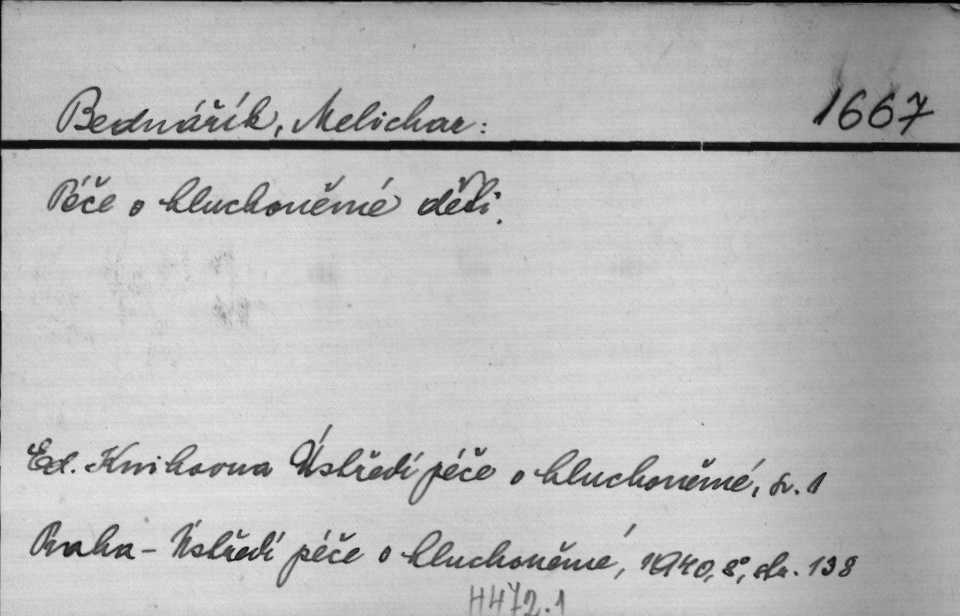 Bednářík, Melichar: 1667
Péče o hluchoněmé děti.
Ed. Knihovna Ústředí péče o hluchoněmé, sv. 1
Praha - Ústředí péče o hluchoněmé, 1940, 8°, str. 138
H472.1